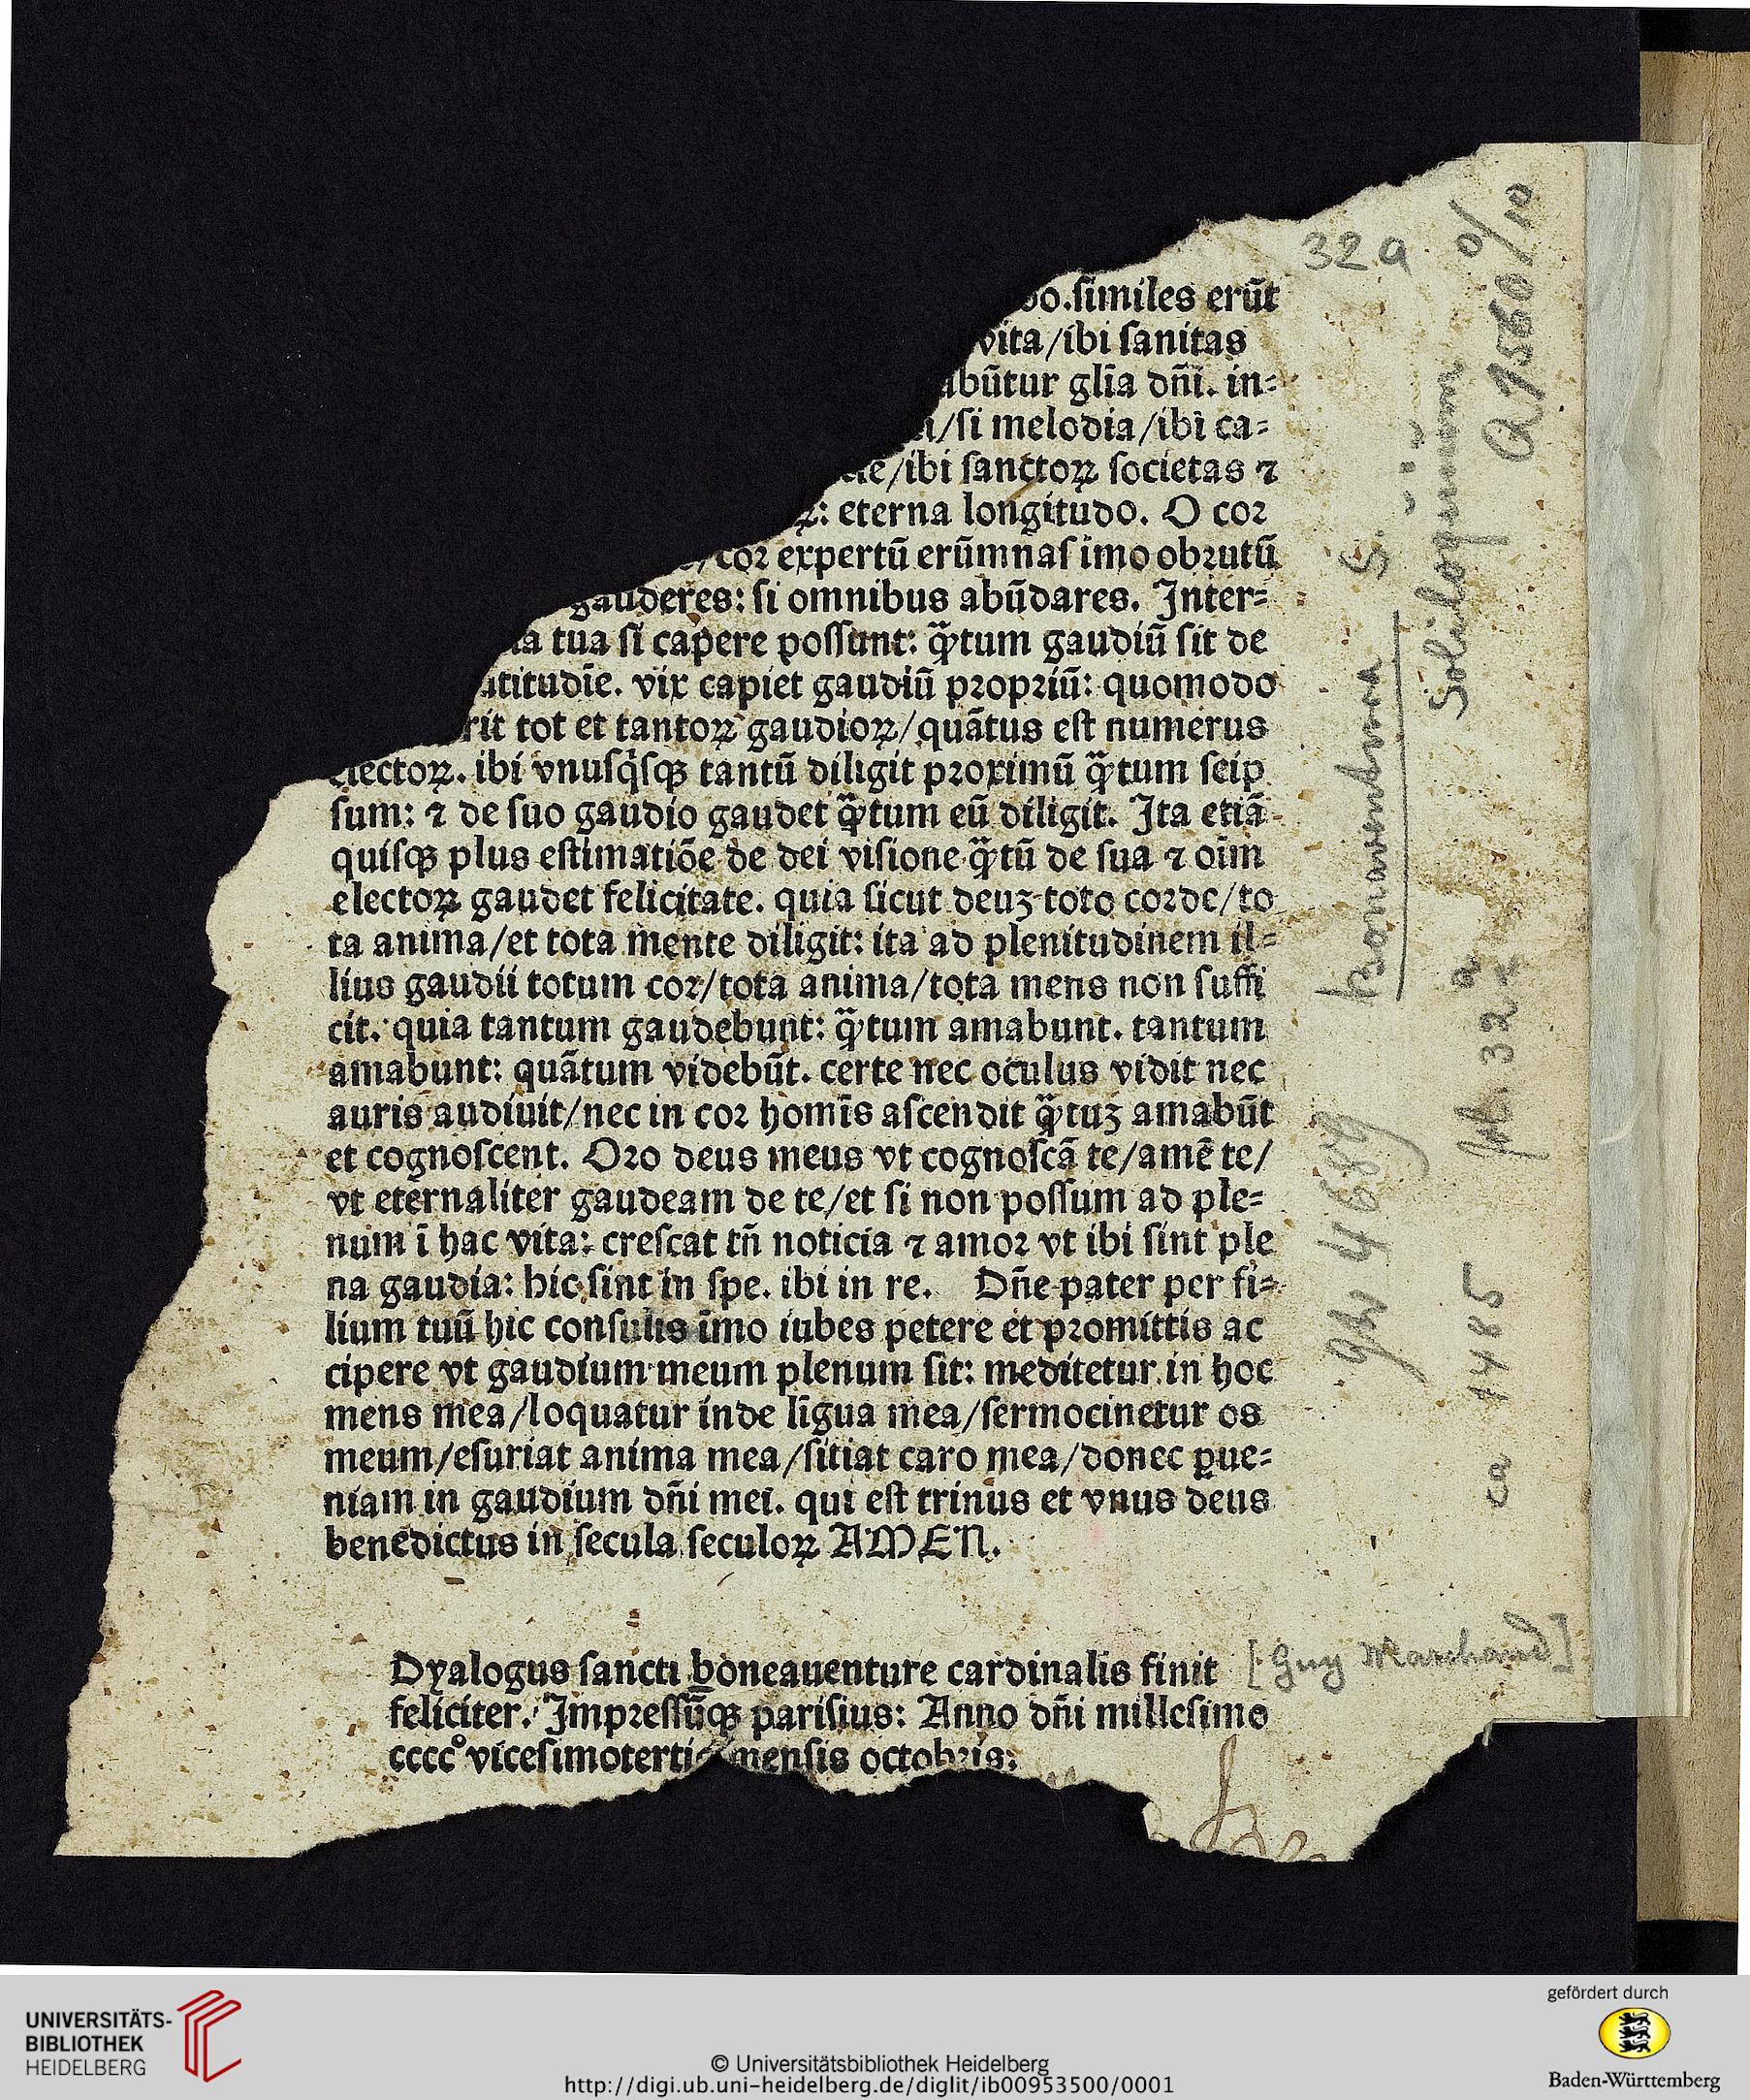 32a
ſimiles erūt
vita/ibi ſanitas
būtur gl̄ia dn̄i. in⸗
/ſi melodia/ibi ca⸗
/ibi ſanctoꝝ ſocietas ⁊
: eterna longitudo. O coꝛ
coꝛ expertū erūmnaſ imo obꝛutū
gauderes: ſi omnibus abūdares. Inter⸗
tua ſi capere poſſunt: q̄tum gaudiū ſit de
titudīe. vix capiet gaudiū pꝛopꝛiū: quomodo
rit tot et tantoꝝ gaudioꝝ/quātus eſt numerus
electoꝝ. ibi vnuſq̇ſqꝫ tantū diligit pꝛoximū q̄tum ſeip
ſum: ⁊ de ſuo gaudio gaudet q̄tum eū diligit. Ita etiā
quiſqꝫ plus eſtimatiōe de dei viſione q̄tū de ſua ⁊ oīm
electoꝝ gaudet felicitate. quia ſicut deuꝫ toto coꝛde/to
ta anima/et tota mente diligit: ita ad plenitudinem il⸗
lius gaudii totum coꝛ/tota anima/tota mens non ſuffi
cit. quia tantum gaudebunt: q̄tum amabunt. tantum
amabunt: quātum videbūt. certe nec oculus vidit nec
auris audiuit/nec in coꝛ homīs aſcendit q̄tuꝫ amabūt
et cognoſcent. Oꝛo deus meus vt cognoſcā te/amē te/
vt eternaliter gaudeam de te/et ſi non poſſum ad ple⸗
num ī hac vita: creſcat tn̄ noticia ⁊ amoꝛ vt ibi ſint ple
na gaudia: hic ſint in ſpe. ibi in re. Dn̄e pater per fi⸗
lium tuū hic conſulis īmo iubes petere et pꝛomittis ac
cipere vt gaudium meum plenum ſit: meditetur in hoc
mens mea/loquatur inde līgua mea/ſermocinetur os
meum/eſuriat anima mea/ſitiat caro mea/donec ꝑue⸗
niam in gaudium dn̄i mei. qui eſt trinus et vnus deus
benedictus in ſecula ſeculoꝝ AMEN.
Dyalogus ſancti boneauenture cardinalis finit
feliciter. Impꝛeſſūqꝫ pariſius: Anno dn̄i milleſimo
cccc° viceſimotertio menſis octobꝛis:
[Guy Marchand]
Bonaventura S.
Soliloquium
Q 7560/10
GW 4689
fol. 32 a
ca 1485
UNIVERSITÄTS-
BIBLIOTHEK
HEIDELBERG
© Universitätsbibliothek Heidelberg
http://digi.ub.uni-heidelberg.de/diglit/ib00953500/0001
gefördert durch
Baden-Württemberg